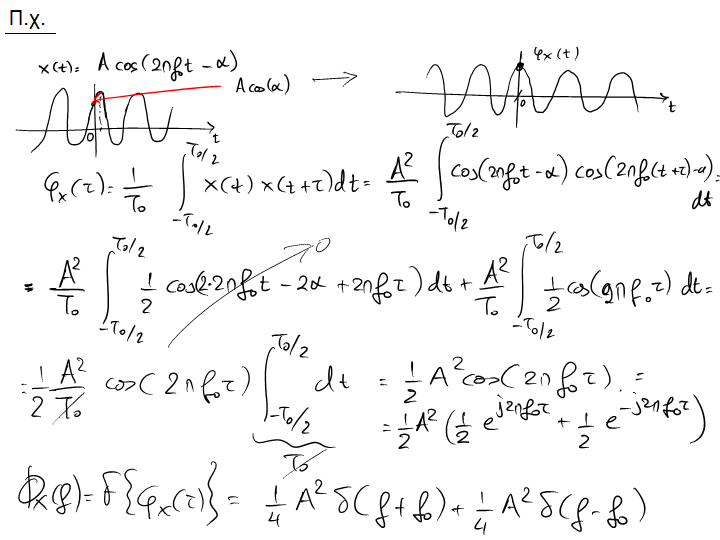 Π.χ.
x(t) = A cos(2πf₀t - α)
A cos(α)
φₓ(t)
0 t
0 t
φₓ(τ) = 1/T₀ ∫_{-T₀/2}^{T₀/2} x(t) x(t+τ) dt = A²/T₀ ∫_{-T₀/2}^{T₀/2} cos(2πf₀t - α) cos(2πf₀(t+τ) - α) dt =
= A²/T₀ ∫_{-T₀/2}^{T₀/2} 1/2 cos(2·2πf₀t - 2α + 2πf₀τ) dt + A²/T₀ ∫_{-T₀/2}^{T₀/2} 1/2 cos(2πf₀τ) dt =
0
= 1/2 A²/T₀ cos(2πf₀τ) ∫_{-T₀/2}^{T₀/2} dt = 1/2 A² cos(2πf₀τ) =
T₀
= 1/2 A² (1/2 e^{j2πf₀τ} + 1/2 e^{-j2πf₀τ})
Φₓ(f) = F{φₓ(τ)} = 1/4 A² δ(f+f₀) + 1/4 A² δ(f-f₀)